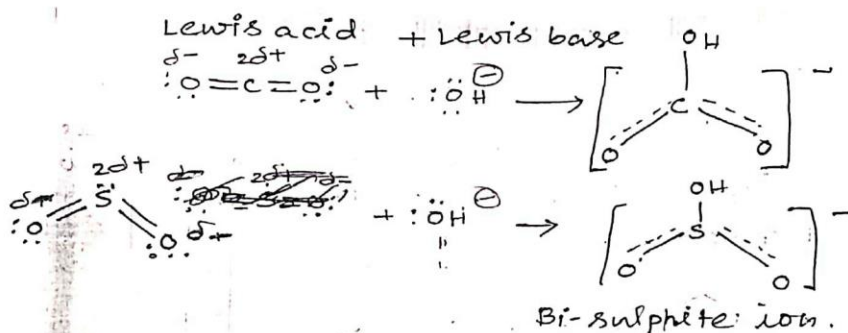 Lewis acid + Lewis base
δ- 2δ+ δ-
:O=C=O: + :OH ⊖ → [ OH C O O ] -
2δ+
δ- O S O δ- + :OH ⊖ → [ OH S O O ] -
Bi-sulphite ion.